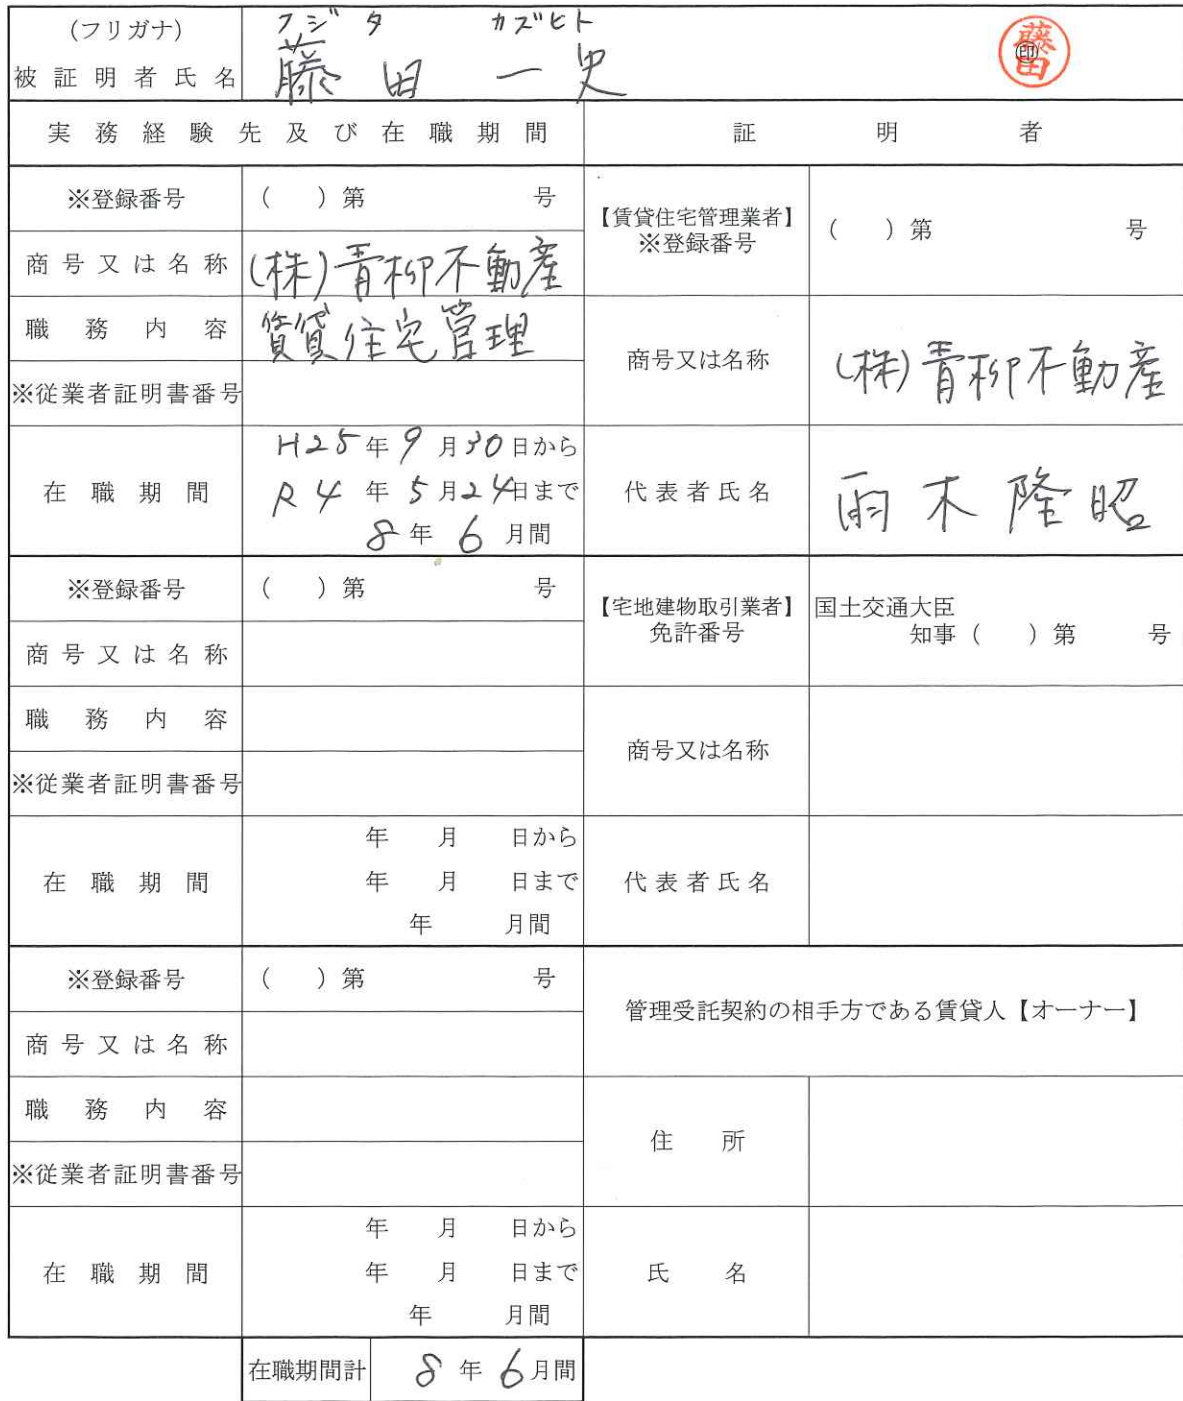 (フリガナ) フジタ カズヒト
被証明者氏名 藤田 一史 ㊞ 藤田
実務経験先及び在職期間 証明者
※登録番号 ( )第 号 【賃貸住宅管理業者】※登録番号 ( )第 号
商号又は名称 (株)青柳不動産
職務内容 賃貸住宅管理 商号又は名称 (株)青柳不動産
※従業者証明書番号
在職期間 H25年9月30日から
R4年5月24日まで
8年6月間
代表者氏名 雨木隆昭
※登録番号 ( )第 号 【宅地建物取引業者】免許番号 国土交通大臣
知事( )第 号
商号又は名称
職務内容 商号又は名称
※従業者証明書番号
在職期間 年 月 日から
年 月 日まで
年 月間
代表者氏名
※登録番号 ( )第 号 管理受託契約の相手方である賃貸人【オーナー】
商号又は名称
職務内容 住所
※従業者証明書番号
在職期間 年 月 日から
年 月 日まで
年 月間
氏名
在職期間計 8年6月間